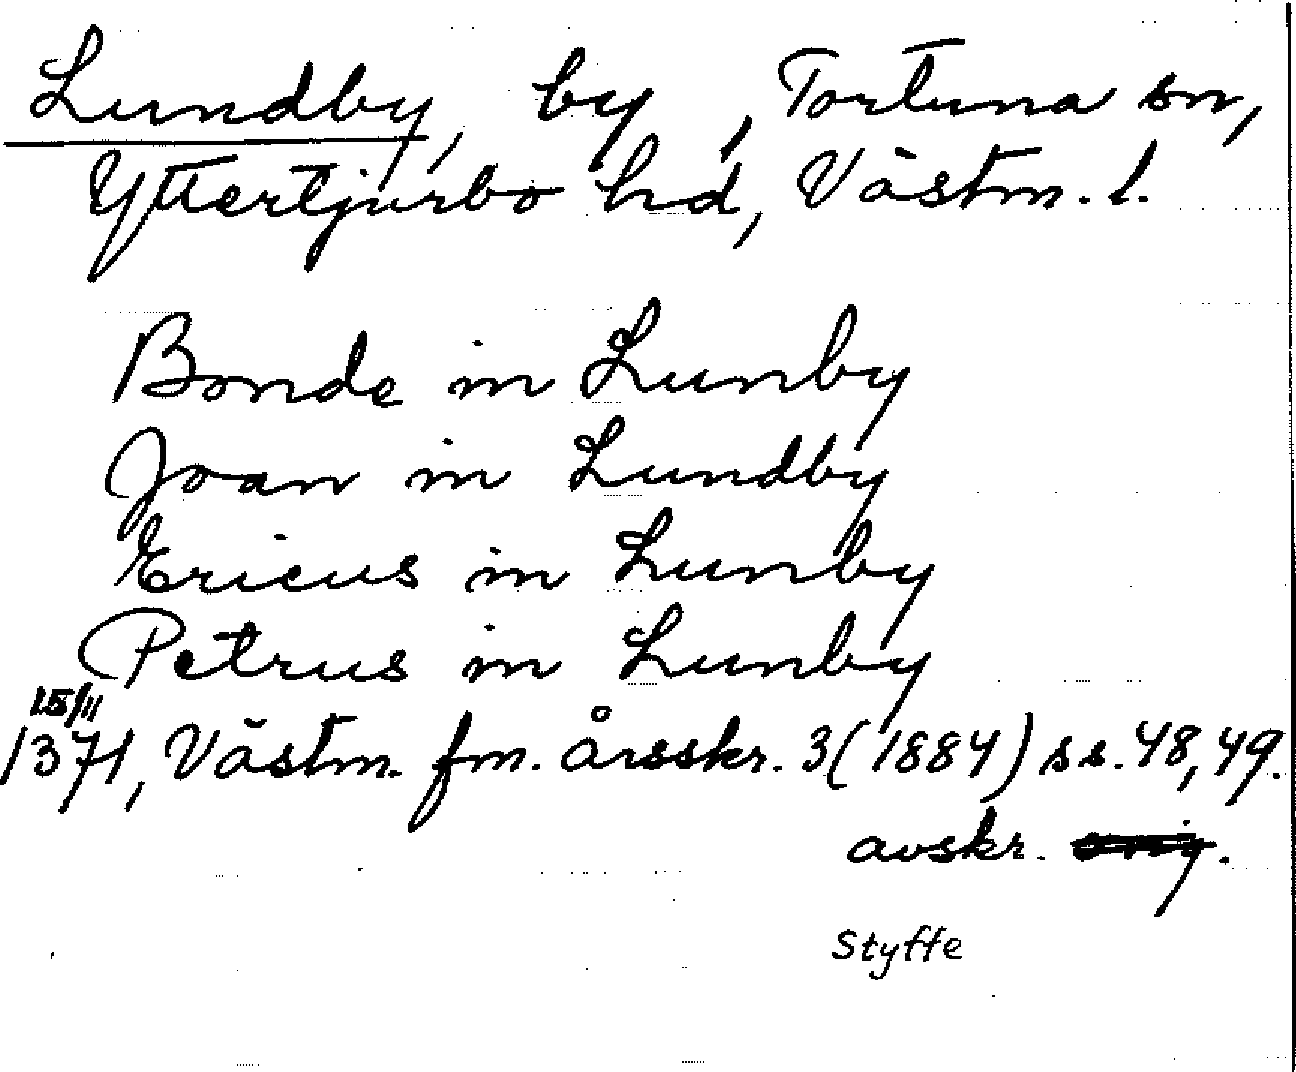 Lundby, by, Tortuna sn,
Yttertjurbo hd, Västm. l.
Bonde in Lunby
Joan in Lundby
Ericus in Lunby
Petrus in Lunby
15/11
1371, Västm. fm. årsskr. 3 (1884) ss. 48, 49.
avskr. orig.
Styffe